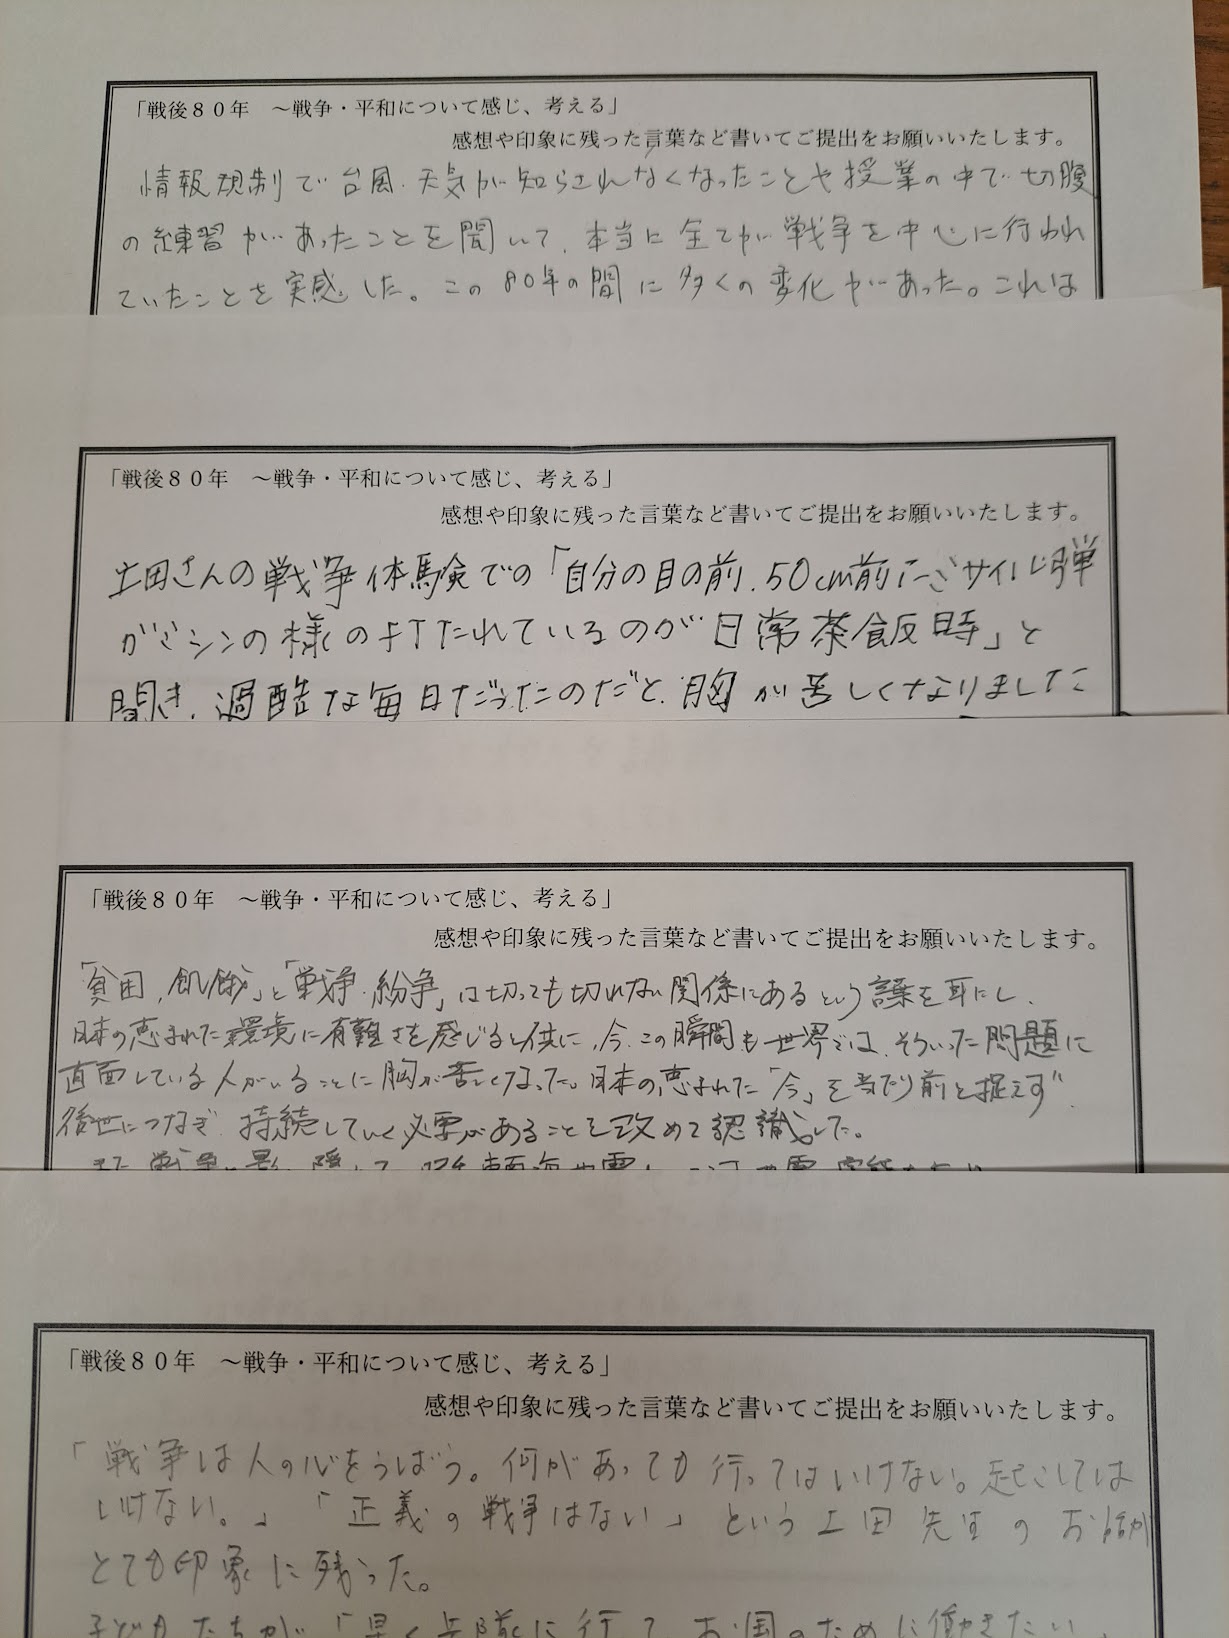 「戦後８０年　～戦争・平和について感じ、考える」
感想や印象に残った言葉など書いてご提出をお願いいたします。
情報規制で台風、天気が知らされなくなったことや授業の中で切腹
の練習があったことを聞いて、本当に全てが戦争を中心に行われ
ていたことを実感した。この80年の間に多くの変化があった。これは
「戦後８０年　～戦争・平和について感じ、考える」
感想や印象に残った言葉など書いてご提出をお願いいたします。
土田さんの戦争体験での「自分の目の前、50cm前にミサイル 弾
がミシンの様の 打たれているのが日常茶飯時」と
聞き、過酷な毎日だったのだと、胸が苦しくなりました
「戦後８０年　～戦争・平和について感じ、考える」
感想や印象に残った言葉など書いてご提出をお願いいたします。
「貧困、飢餓」と「戦争、紛争」は切っても切れない関係にあるという言葉を耳にし、
日本の恵まれた環境に有難さを感じると供に、今、この瞬間も世界では、そういった問題に
直面している人がいることに胸が苦しくなった。日本の恵まれた「今」を当たり前と捉えず
後世につなぎ、持続していく必要があることを改めて認識した。
また 戦争
「戦後８０年　～戦争・平和について感じ、考える」
感想や印象に残った言葉など書いてご提出をお願いいたします。
「戦争は人の心をうばう。何があっても行ってはいけない。起こしては
いけない。」「正義の戦争はない」という土田先生のお話が
とても印象に残った。
子どもたちが「早く兵隊に行って お国のために働きたい」